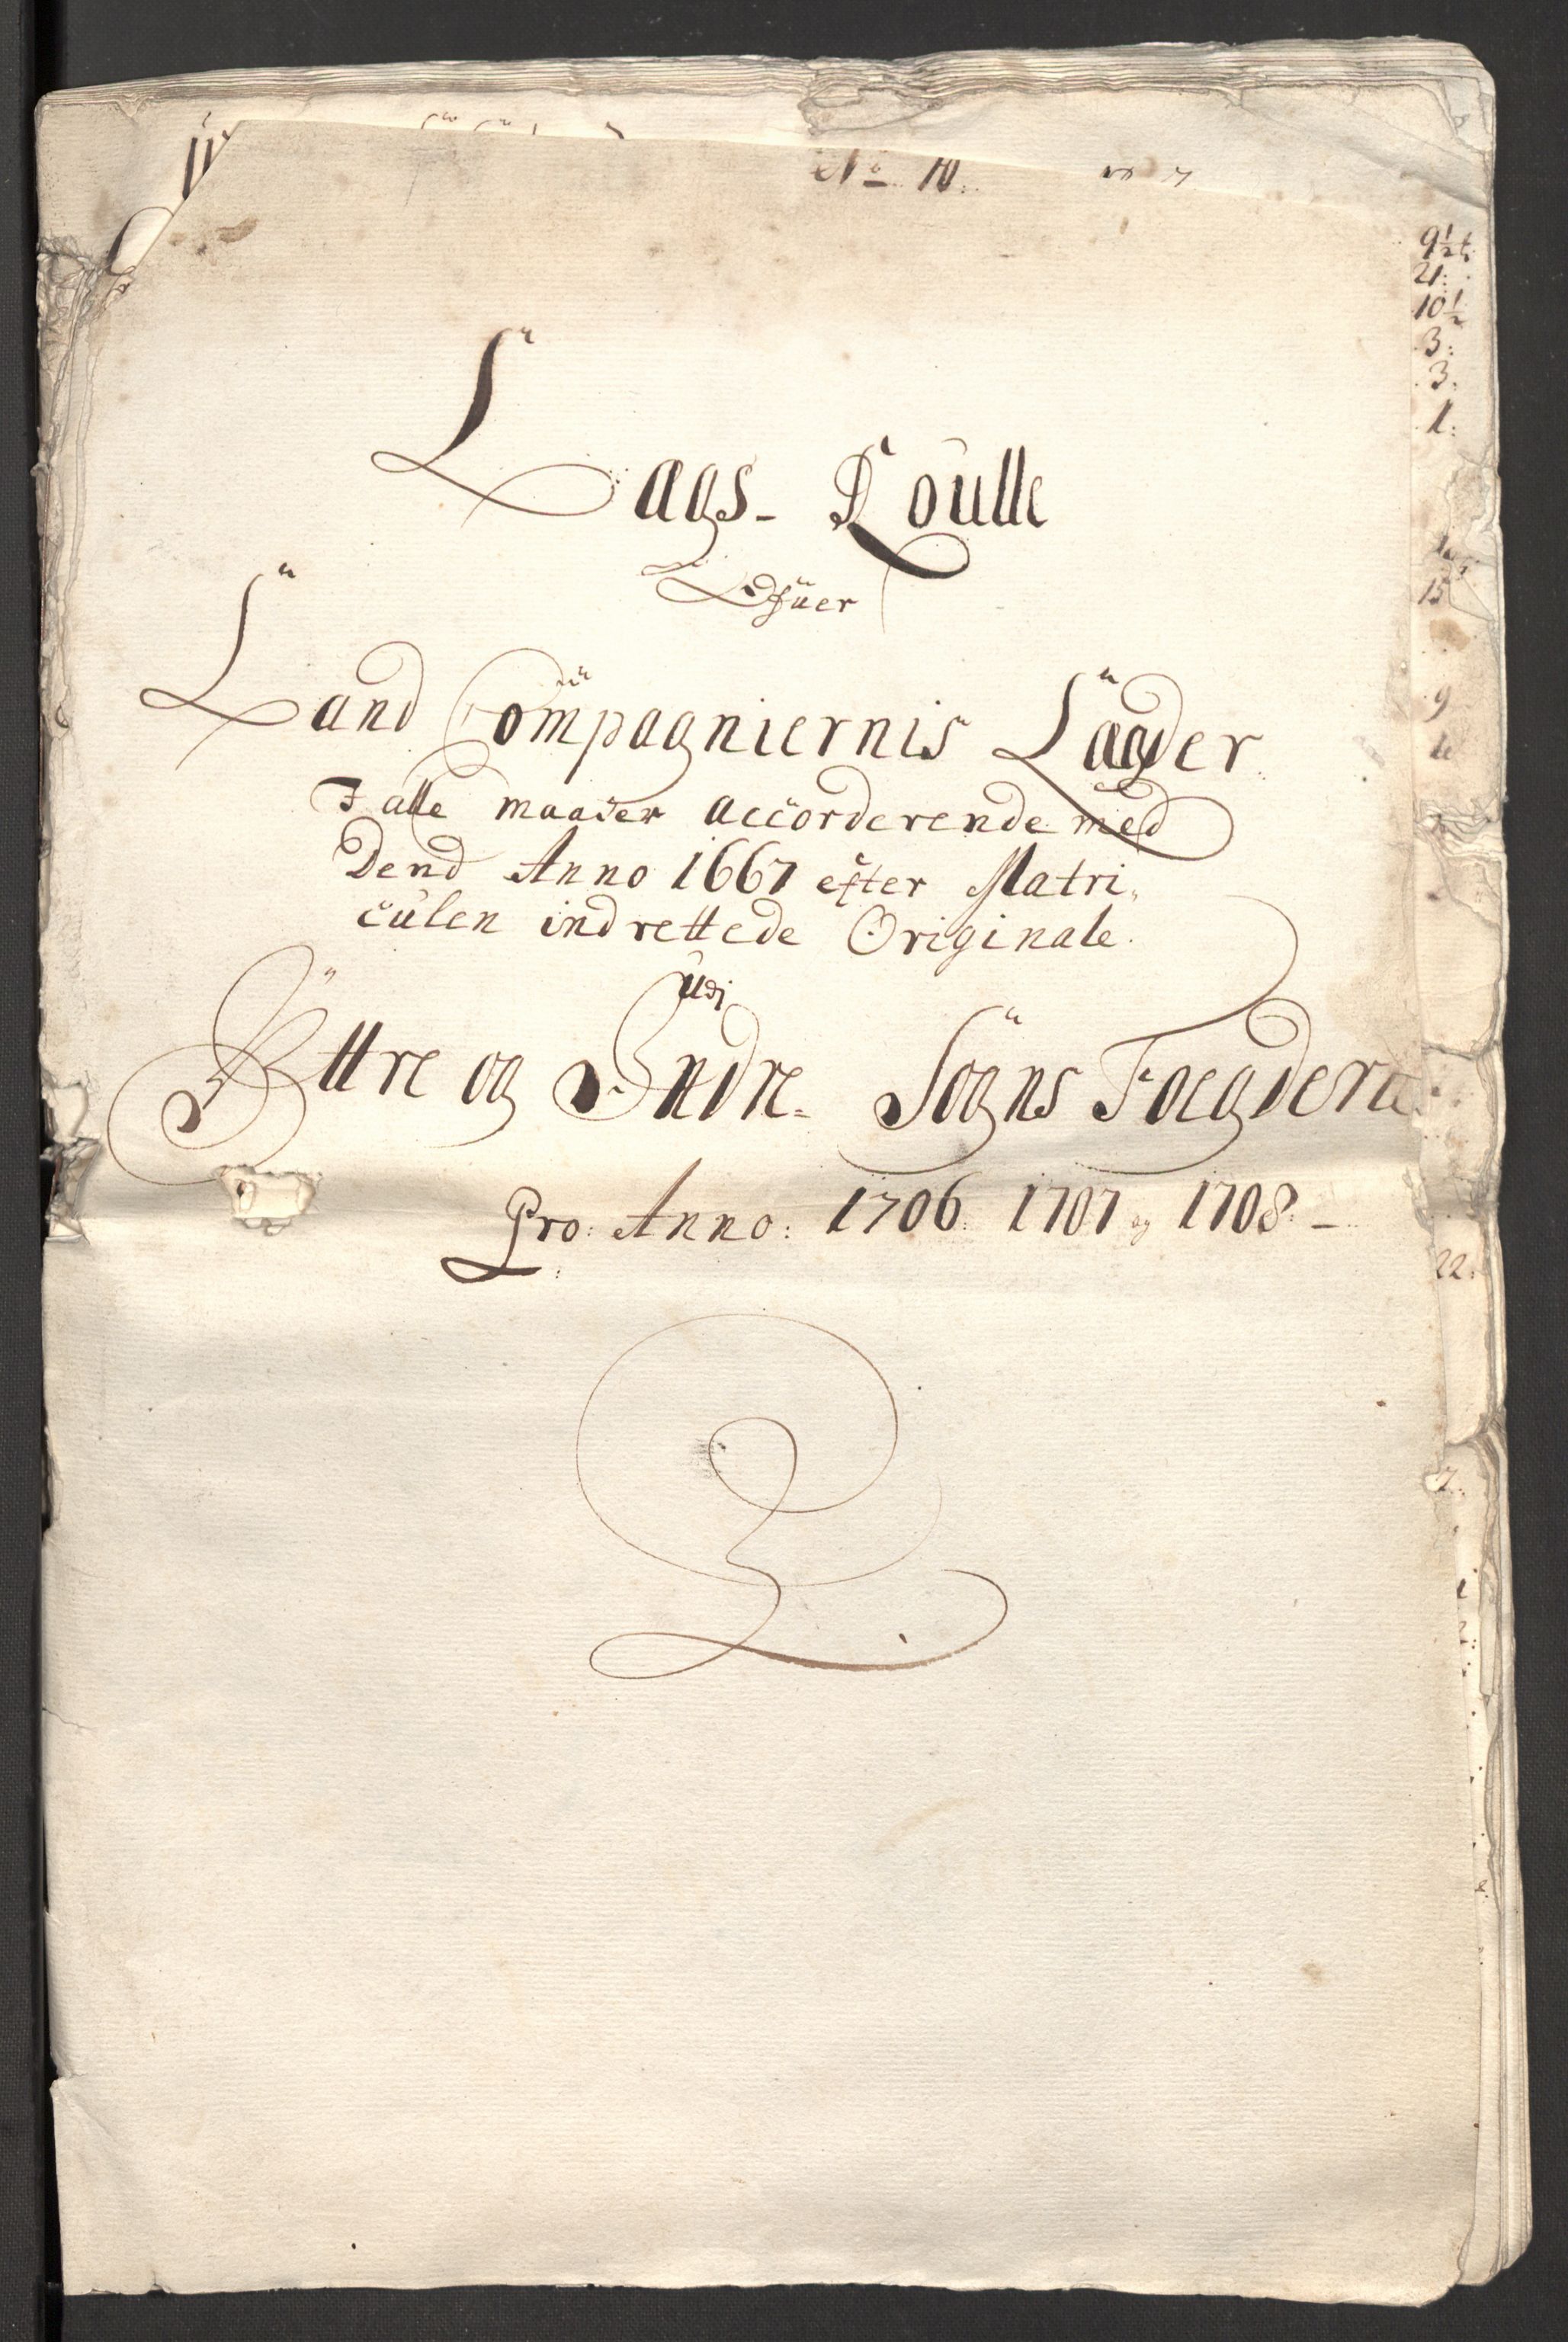 No 10.
Lags- Roulle
Ofuer
Land Compagniernis Lagder
I alle maader accorderende med
Dend Anno 1667 efter Matri-
culen indrettede Originale.
udj
Yttre og Indre- Sogns Foegderie
Pro: Anno: 1706 1707 og 1708 -
9½
21:
10½
3:
3.
1:
15
9
22.